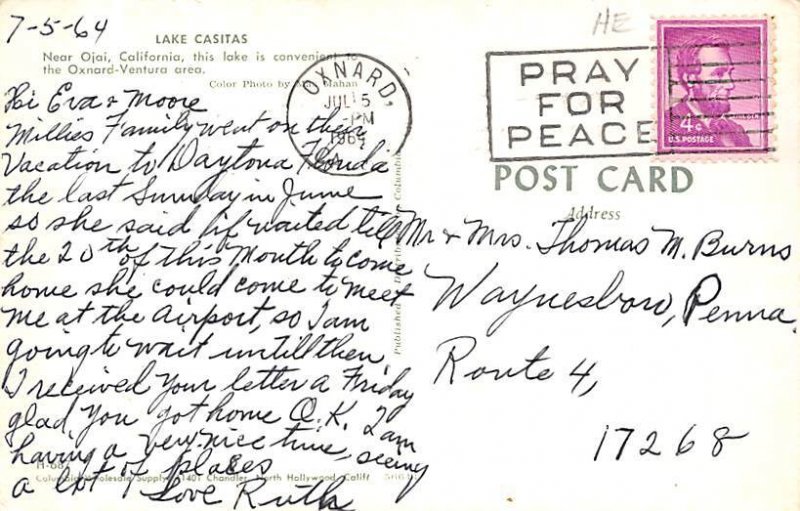 7-5-64
LAKE CASITAS
Near Ojai, California, this lake is convenient to
the Oxnard-Ventura area.
Color Photo by Mahan
Hi Eva & Moore
Millies Family went on their
Vacation to Daytona Florida
the last Sunday in June
so she said if waited till
the 20th of this Month to come
home she could come to meet
me at the airport, so I am
going to wait untill then
I received your letter a Friday
glad you got home O.K. I am
having a very nice time, seeing
a lot of places
Love Ruth
H-68
Columbia Wholesale Supply, 1401 Chandler, North Hollywood, Calif
Published & Distributed Columbia
HE
OXNARD,
JUL 5
PM
1964
PRAY
FOR
PEACE
4¢
LINCOLN
U.S. POSTAGE
POST CARD
Address
Mr & Mrs. Thomas M. Burns
Waynesboro, Penna.
Route 4,
17268